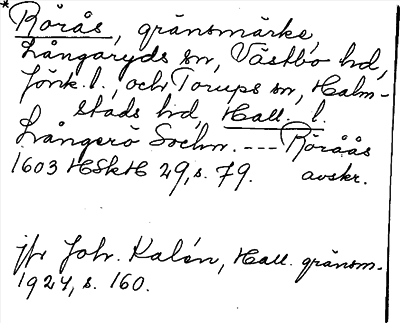 *Rörås, gränsmärke,
Långaryds sn, Västbo hd,
Jönk. l., och Torups sn, Halm-
stads hd, Hall. l.
Långerö Sochn. --- Röråås
1603 HSkH 29, s. 79. avskr.
jfr Joh. Kalén, Hall. gränsm.
1924, s. 160.